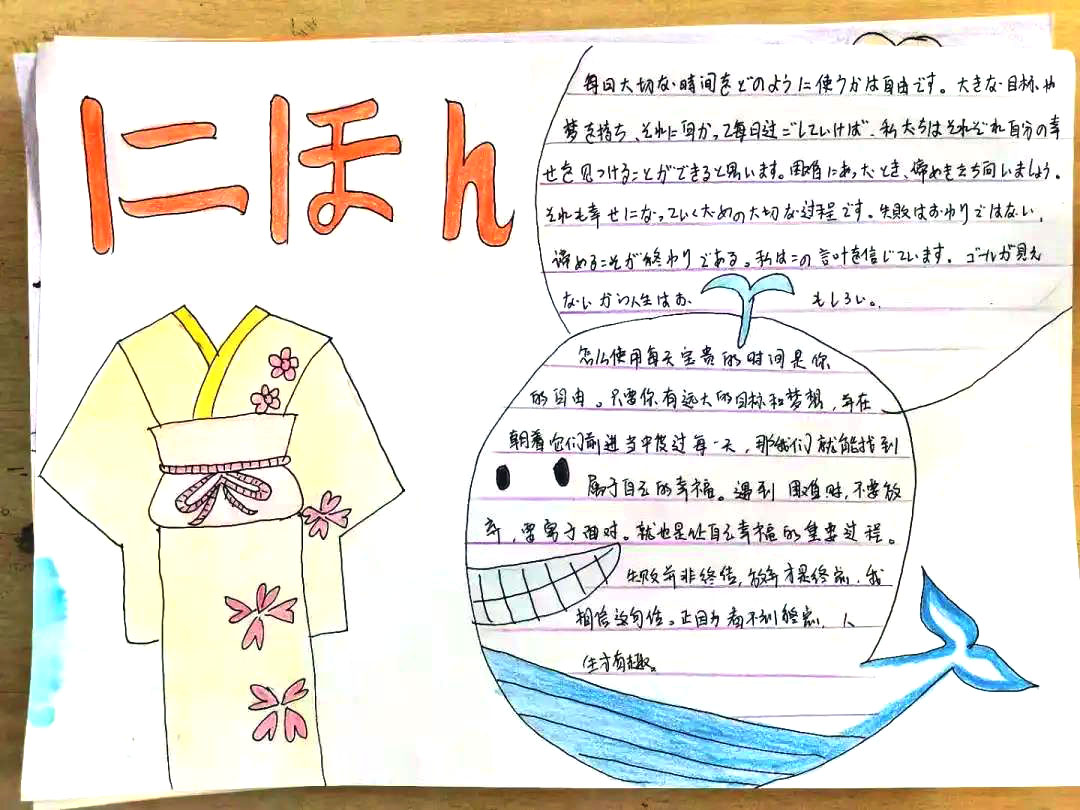 にほん
毎日大切な時間をどのように使うかは自由です。大きな目标や
夢を持ち、それに向かって每日过ごしていけば、私たちはそれぞれ自分の幸
せを見つけることができると思います。困难にあったとき、谛めを立ち向いましょう。
それも幸せになっていくための大切な过程です。失敗はおわりではない、
谛めるこそが终わりである。私はこの言叶を信じています。ゴールが見え
ないから人生はお もしろい。
怎么使用每天宝贵的时间是你
的自由。只要你有远大的目标和梦想，并在
朝着它们前进当中度过每一天，那我们就能找到
属于自己的幸福。遇到困难时，不要放
弃，要勇于面对。就也是让自己幸福的重要过程。
失败并非终结，放弃才是终点，我
相信这句话。正因为看不到终点，人
生才有趣。